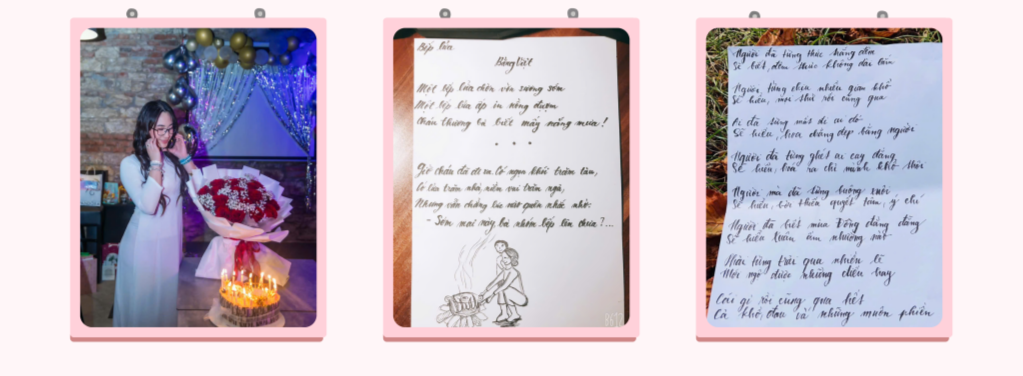 Bếp lửa
Bằng Việt
Một bếp lửa chờn vờn sương sớm
Một bếp lửa ấp iu nồng đượm
Cháu thương bà biết mấy nắng mưa!
* * *
Giờ cháu đã đi xa. Có ngọn khói trăm tàu,
Có lửa trăm nhà, niềm vui trăm ngả,
Nhưng vẫn chẳng lúc nào quên nhắc nhở:
- Sớm mai này bà nhóm bếp lên chưa?...
Người đã từng thức trắng đêm
Sẽ biết, đêm thực không dài lắm
Người từng chịu nhiều gian khổ
Sẽ hiểu, mọi thứ rồi cũng qua
Ai đã từng mất đi ai đó
Sẽ hiểu, hoa chẳng đẹp bằng người
Người đã từng ghét ai cay đắng
Sẽ hiểu, hoá ra chỉ mình khổ thôi
Người mà đã từng buông xuôi
Sẽ hiểu, bởi thiếu quyết tâm, ý chí
Người đã biết mùa Đông đằng đẵng
Sẽ hiểu Xuân ấm nhường nào
Phải từng trải qua nhiều lẽ
Mới ngộ được những điều hay
Cái gì rồi cũng qua hết
Cả khổ, đau và những muộn phiền